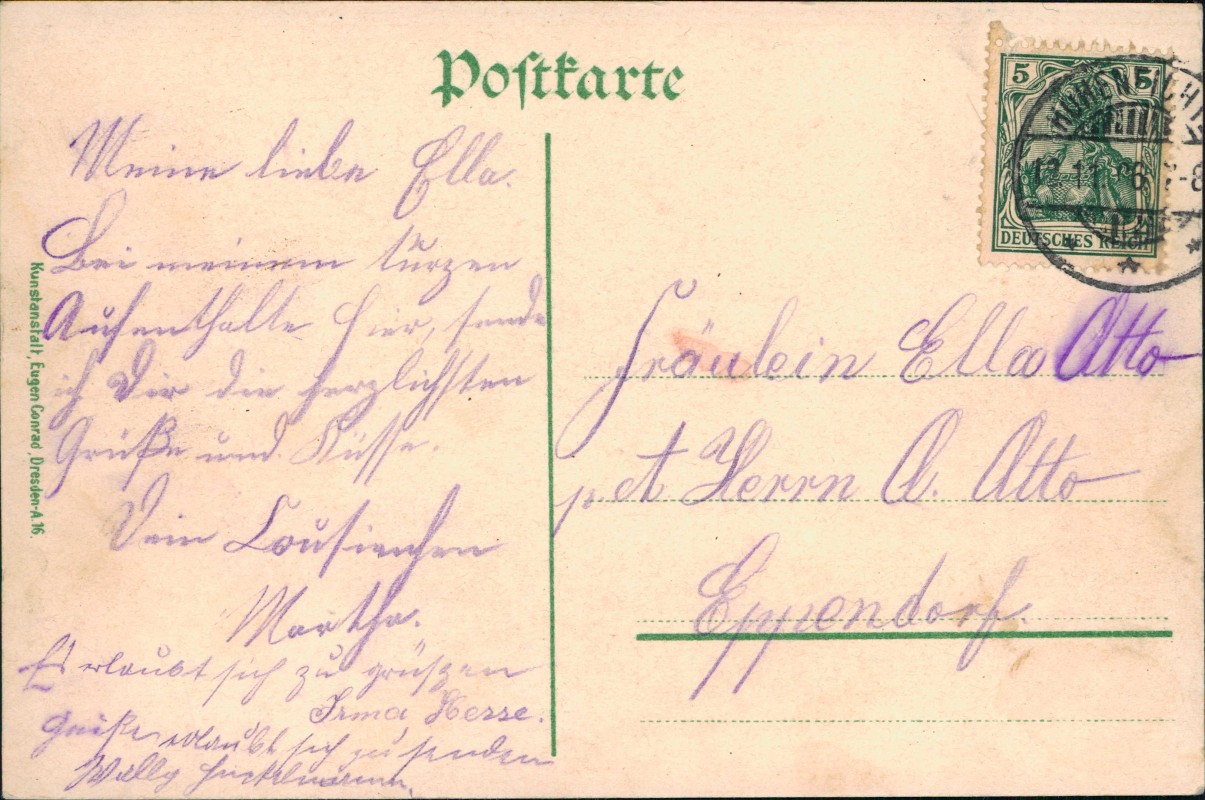 Postkarte
Meine liebe Ella.
Bei meinem kurzen
Aufenthalte hier, sende
ich Dir die herzlichsten
Grüße und Küsse.
Dein Cousinchen
Martha.
Es erlaubt sich zu grüßen
Irma Hesse.
Grüße erlaubt sich zu senden
Willy
Kunstanstalt, Eugen Conrad, Dresden-A 16.
5 5
DEUTSCHES REICH
Fräulein Ella Otto
Herrn A. Otto
Eppendorf.